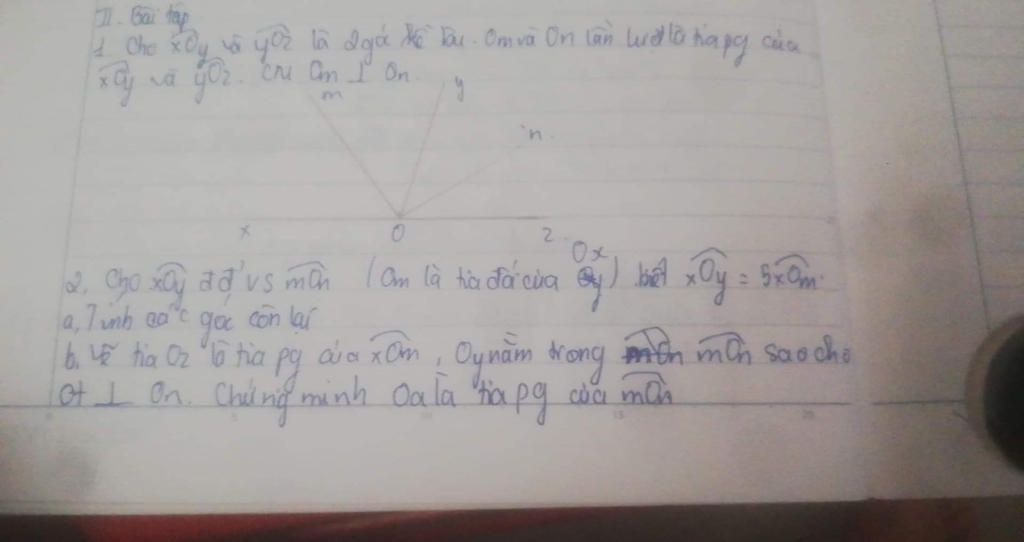 II. Bài tập
1. Cho xOy và yOz là 2 góc kề bù. Om và On lần lượt là tia pg của
xOy và yOz. CM Om ⊥ On.
m
y
n
x
O
z
Ox
2. Cho xOy đđ' vs mOn (Om là tia đối của Oy) biết xOy = 5xOm.
a, Tính các góc còn lại
b. Vẽ tia Oz là tia pg của xOm, Oy nằm trong mOn sao cho
Ot ⊥ On. Chứng minh Oa là tia pg của mOn